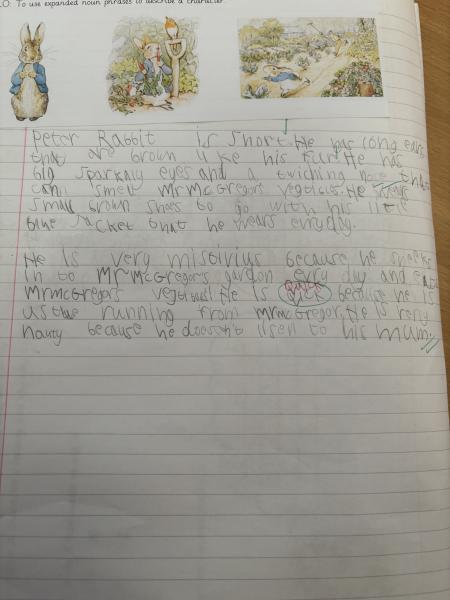 L.O. To use expanded noun phrases to describe a character.
Peter Rabbit is short. He has long ears
that are brown like his fur. He has
big sparkaly eyes and a twiching nose that
can smell Mr McGregors vegtibuls. He wears
small brown shoes to go with his little
blue Jacket that he wears evryday.
He is very mistivius because he sneeks
in to Mr McGregor's gardon evry day and eats
Mr mcGregors vegtibuls! He is quick because he is
us the running from Mr mcGregor. He is very
nauty because he doesen't lisen to his mum.